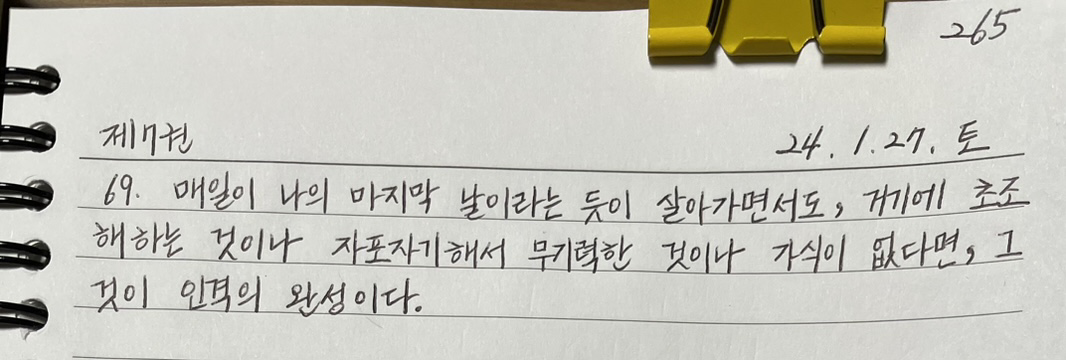 265
제7권
24. 1. 27. 토
69. 매일이 나의 마지막 날이라는 듯이 살아가면서도, 거기에 초조
해하는 것이나 자포자기해서 무기력한 것이나 가식이 없다면, 그
것이 인격의 완성이다.